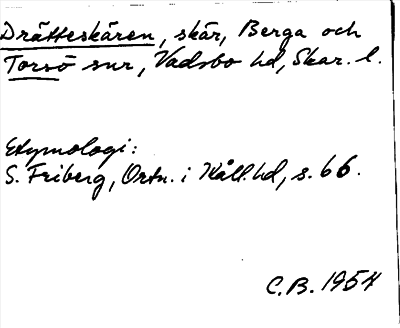 Drätteskären, skär, Berga och
Torsö snr, Vadsbo hd, Skar. l.
Etymologi:
S. Friberg, Ortn. i Kåll. hd, s. 66.
C.B. 1954